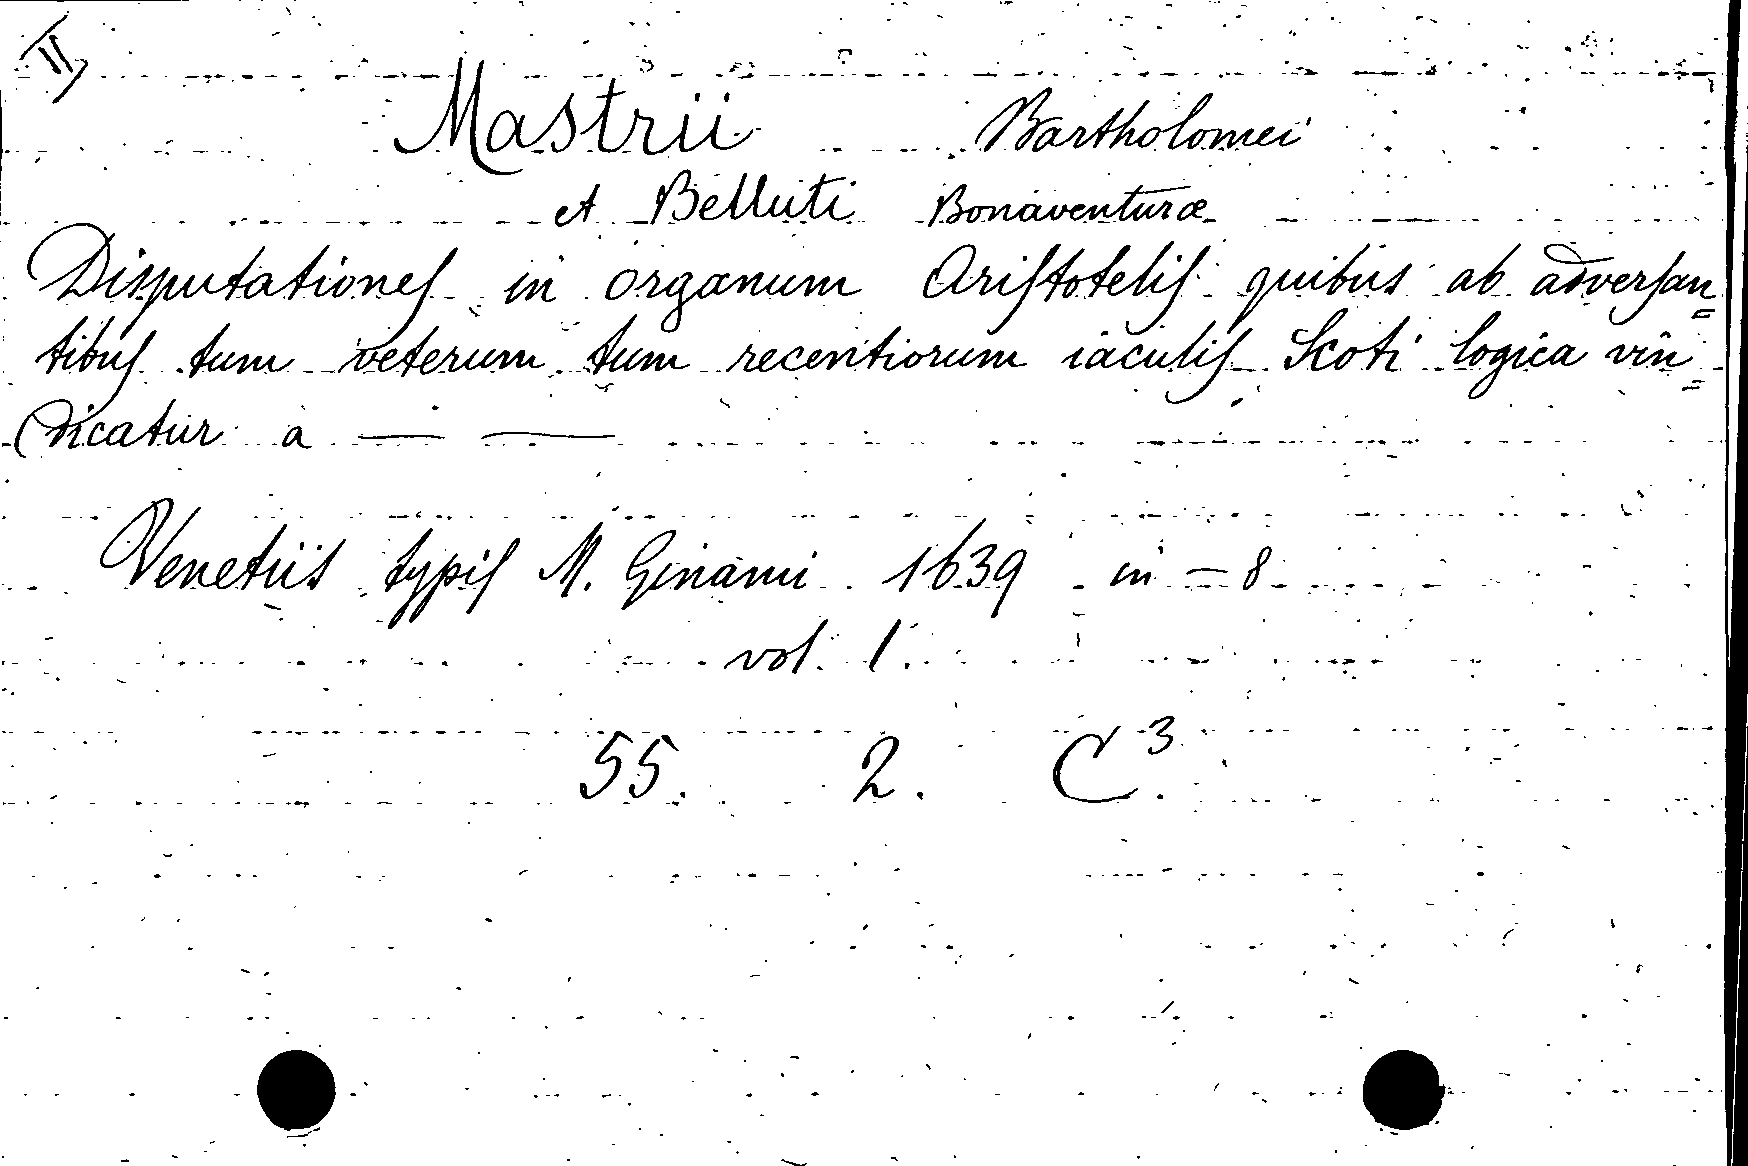 II
Mastrii Bartholomei
et Belluti Bonaventuræ
Disputationes in organum Aristotelis quibus ab adversan=
tibus tum veterum tum recentiorum iaculis Scoti logica vin=
dicatur a — —
Venetiis typis M. Ginami 1639 in – 8
vol. 1.
55. 2. C³.